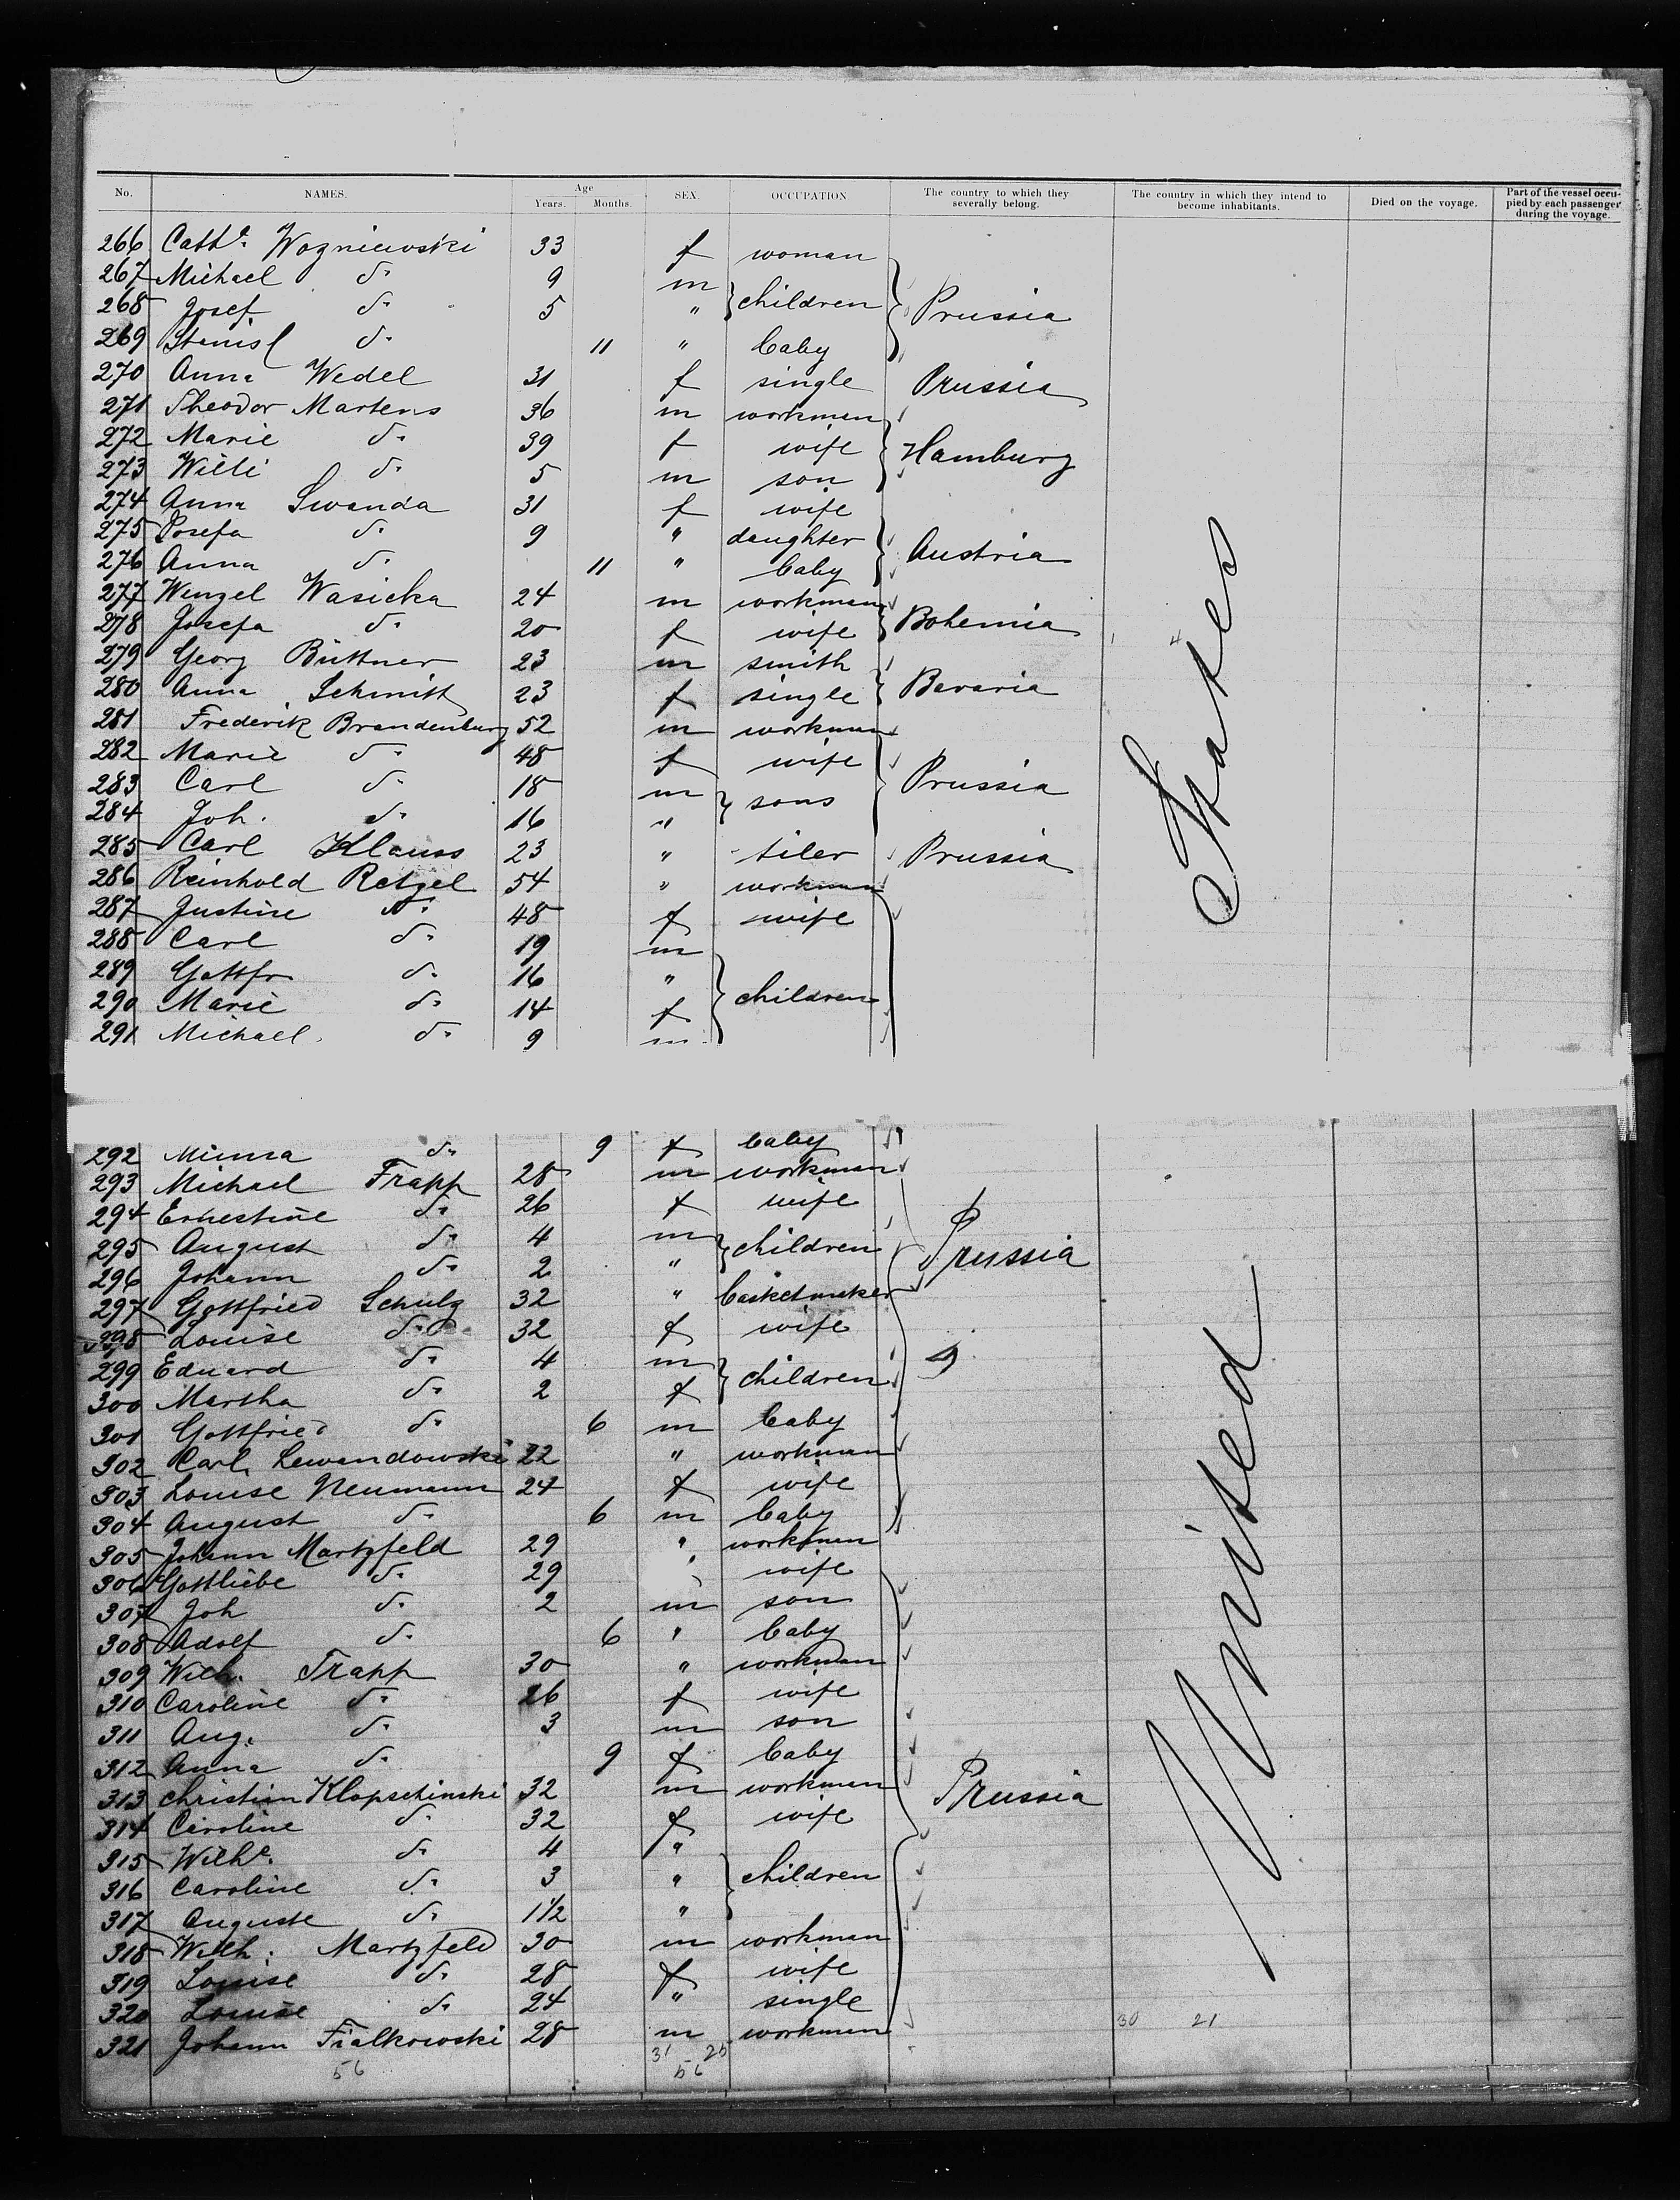 No. NAMES. Age Years. Months. SEX. OCCUPATION The country to which they severally belong. The country in which they intend to become inhabitants. Died on the voyage. Part of the vessel occupied by each passenger during the voyage.
266 Cathe. Wozniewski 33 f woman
267 Michael do 9 m
268 Josef do 5 " children Prussia
269 Stanisl do 11 " baby
270 Anna Wedel 31 f single Prussia
271 Theodor Martens 36 m workman
272 Marie do 39 f wife Hamburg
273 Willi do 5 m son
274 Anna Swanda 31 f wife
275 Josefa do 9 " daughter Austria
276 Anna do 11 " baby
277 Wenzel Wasicka 24 m workman
278 Josefa do 20 f wife Bohemia
279 Georg Büttner 23 m smith
280 Anna Schmitt 23 f single Bavaria
281 Frederik Brandenburg 52 m workman
282 Marie do 48 f wife
283 Carl do 18 m sons Prussia
284 Joh. do 16 "
285 Carl Klauss 23 " tiler Prussia
286 Reinhold Retzel 54 " workman
287 Justine do 48 f wife
288 Carl do 19 m
289 Gottfr do 16 "
290 Marie do 14 f children
291 Michael do 9 m
292 Minna do 9 f baby
293 Michael Trapp 28 m workman
294 Ernestine do 26 f wife
295 August do 4 m children Prussia
296 Johann do 2 "
297 Gottfried Schulz 32 " basketmaker
298 Louise do 32 f wife
299 Eduard do 4 m children
300 Martha do 2 f
301 Gottfried do 6 m baby
302 Carl Lewandowski 22 " workman
303 Louise Neumann 24 f wife
304 August do 6 m baby
305 Johann Martzfeld 29 " workman
306 Gottliebe do 29 " wife
307 Joh do 2 m son
308 Adolf do 6 " baby
309 Wilh. Trapp 30 " workman
310 Caroline do 26 f wife
311 Aug. do 3 m son
312 Anna do 9 f baby
313 Christian Klopschinski 32 m workman Prussia
314 Caroline do 32 f wife
315 Wilhe. do 4 "
316 Caroline do 3 " children
317 Auguste do 1 1/2 "
318 Wilh. Martzfeld 30 m workman
319 Louise do 28 f wife
320 Louise do 24 " single
321 Johann Fialkowski 28 m workman
United States
30 21
31 25
56 56